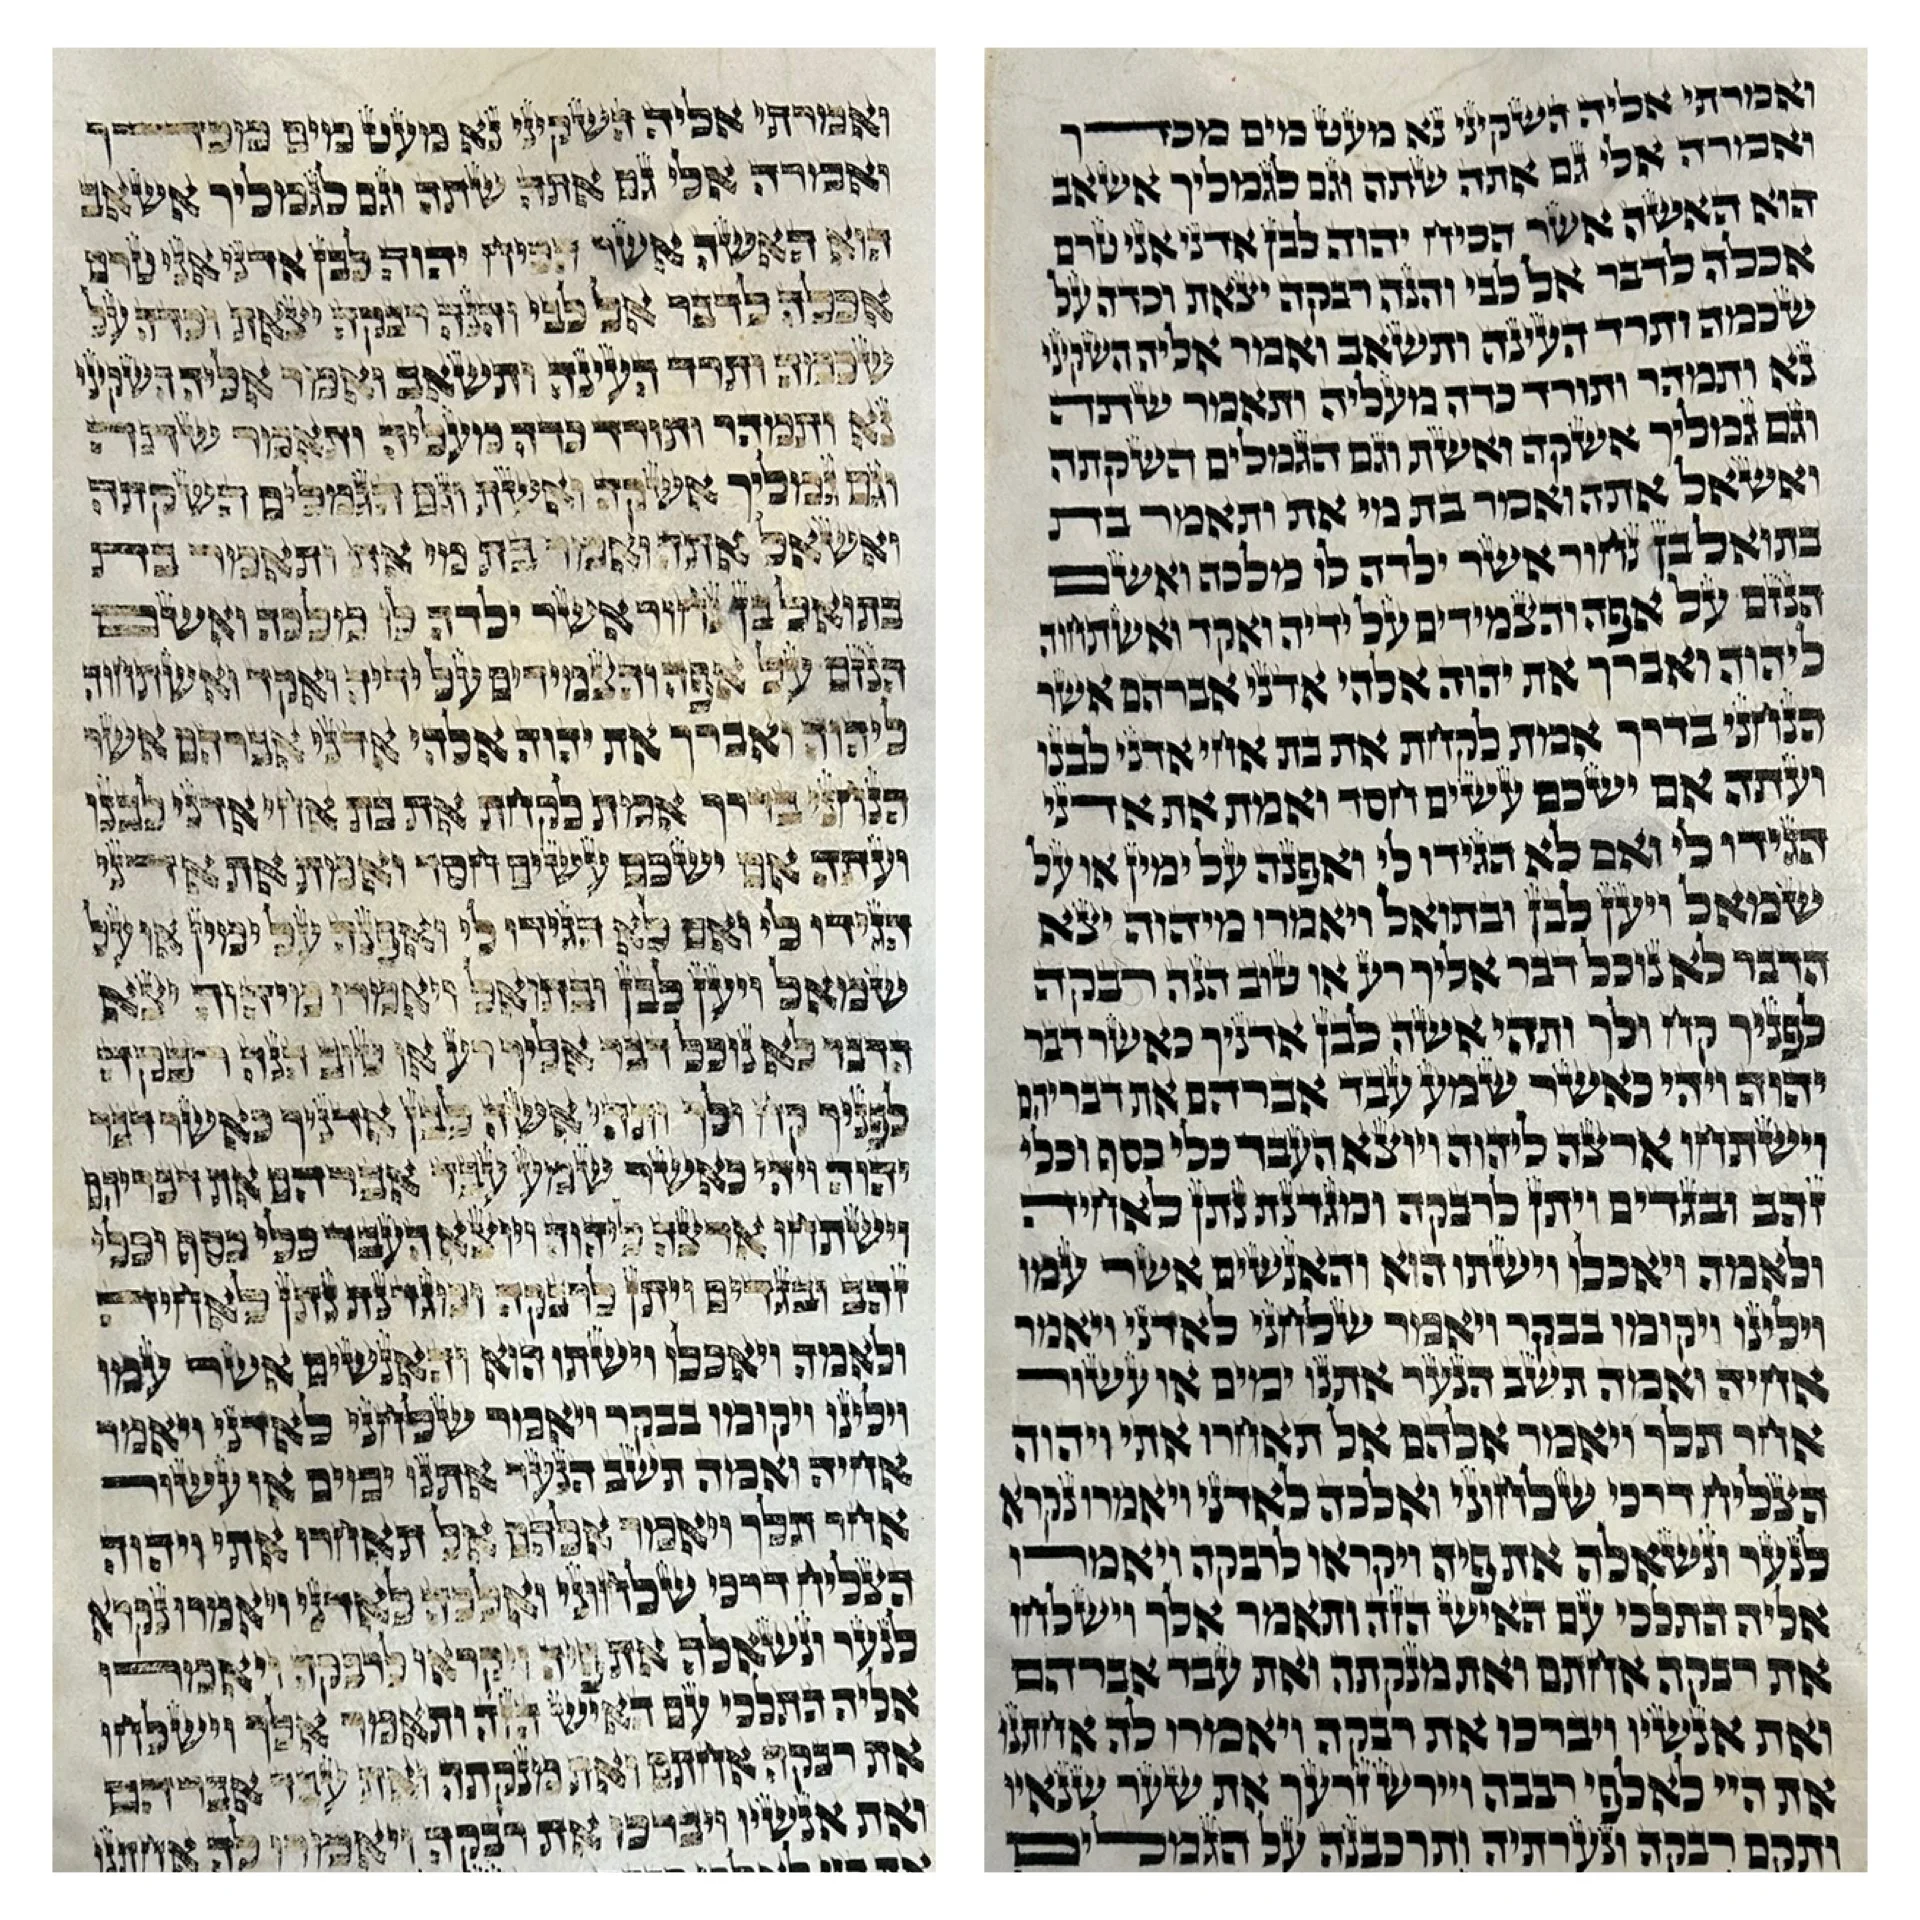 ואמרתי אליה השקיני נא מעט מים מכדך
ואמרה אלי גם אתה שתה וגם לגמליך אשאב
הוא האשה אשר הכיח יהוה לבן אדני אני טרם
אכלה לדבר אל לבי והנה רבקה יצאת וכדה על
שכמה ותרד העינה ותשאב ואמר אליה השקיני
נא ותמהר ותורד כדה מעליה ותאמר שתה
וגם גמליך אשקה ואשת וגם הגמלים השקתה
ואשאל אתה ואמר בת מי את ותאמר בת
בתואל בן נחור אשר ילדה לו מלכה ואשם
הנזם על אפה והצמידים על ידיה ואקד ואשתחוה
ליהוה ואברך את יהוה אלהי אדני אברהם אשר
הנחני בדרך אמת לקחת את בת אחי אדני לבנו
ועתה אם ישכם עשים חסד ואמת את אדני
הגידו לי ואם לא הגידו לי ואפנה על ימין או על
שמאל ויען לבן ובתואל ויאמרו מיהוה יצא
הדבר לא נוכל דבר אליך רע או טוב הנה רבקה
לפניך קח ולך ותהי אשה לבן אדניך כאשר דבר
יהוה ויהי כאשר שמע עבד אברהם את דבריהם
וישתחו ארצה ליהוה ויוצא העבד כלי כסף וכלי
זהב ובגדים ויתן לרבקה ומגדנת נתן לאחיה
ולאמה ויאכלו וישתו הוא והאנשים אשר עמו
וילינו ויקומו בבקר ויאמר שלחני לאדני ויאמר
אחיה ואמה תשב הנער אתנו ימים או עשור
אחר תלך ויאמר אלהם אל תאחרו אתי ויהוה
הצליח דרכי שלחוני ואלכה לאדני ויאמרו נקרא
לנער ונשאלה את פיה ויקראו לרבקה ויאמרו
אליה התלכי עם האיש הזה ותאמר אלך וישלחו
את רבקה אחתם ואת מנקתה ואת עבד אברהם
ואת אנשיו ויברכו את רבקה ויאמרו לה אחתנו
ואמרתי אליה השקיני נא מעט מים מכדך
ואמרה אלי גם אתה שתה וגם לגמליך אשאב
הוא האשה אשר הכיח יהוה לבן אדני אני טרם
אכלה לדבר אל לבי והנה רבקה יצאת וכדה על
שכמה ותרד העינה ותשאב ואמר אליה השקיני
נא ותמהר ותורד כדה מעליה ותאמר שתה
וגם גמליך אשקה ואשת וגם הגמלים השקתה
ואשאל אתה ואמר בת מי את ותאמר בת
בתואל בן נחור אשר ילדה לו מלכה ואשם
הנזם על אפה והצמידים על ידיה ואקד ואשתחוה
ליהוה ואברך את יהוה אלהי אדני אברהם אשר
הנחני בדרך אמת לקחת את בת אחי אדני לבנו
ועתה אם ישכם עשים חסד ואמת את אדני
הגידו לי ואם לא הגידו לי ואפנה על ימין או על
שמאל ויען לבן ובתואל ויאמרו מיהוה יצא
הדבר לא נוכל דבר אליך רע או טוב הנה רבקה
לפניך קח ולך ותהי אשה לבן אדניך כאשר דבר
יהוה ויהי כאשר שמע עבד אברהם את דבריהם
וישתחו ארצה ליהוה ויוצא העבד כלי כסף וכלי
זהב ובגדים ויתן לרבקה ומגדנת נתן לאחיה
ולאמה ויאכלו וישתו הוא והאנשים אשר עמו
וילינו ויקומו בבקר ויאמר שלחני לאדני ויאמר
אחיה ואמה תשב הנער אתנו ימים או עשור
אחר תלך ויאמר אלהם אל תאחרו אתי ויהוה
הצליח דרכי שלחוני ואלכה לאדני ויאמרו נקרא
לנער ונשאלה את פיה ויקראו לרבקה ויאמרו
אליה התלכי עם האיש הזה ותאמר אלך וישלחו
את רבקה אחתם ואת מנקתה ואת עבד אברהם
ואת אנשיו ויברכו את רבקה ויאמרו לה אחתנו
את היי לאלפי רבבה ויירש זרעך את שער שנאיו
ותקם רבקה ונערתיה ותרכבנה על הגמלים